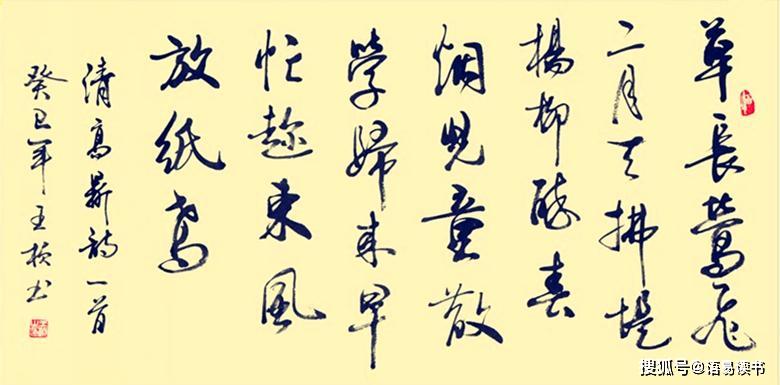 草長鶯飛
二月天拂堤
楊柳醉春
烟兒童散
學歸来早
忙趁東風
放紙鳶
清高鼎詩一首
癸巳年王书
搜狐号@语易读书